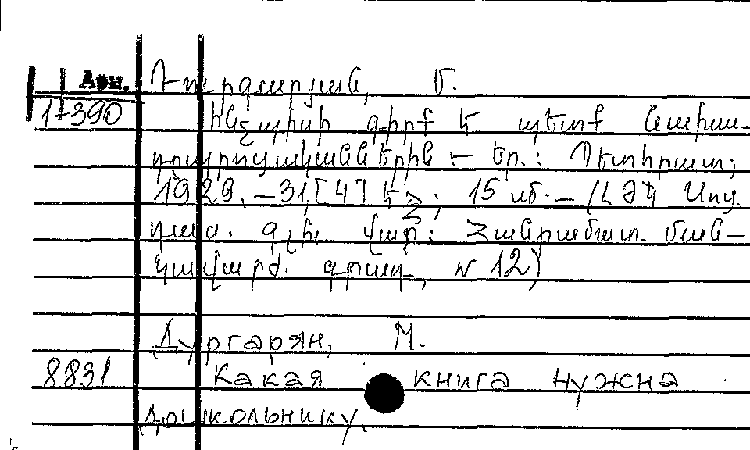 Արm.
17390 Դուրգարյան, Մ.
Ինչպիսի գիրք է պետք նախա-
դպրոցականներին – Եր.: Պետհրատ;
1929. – 31, [4] էջ; 15 սմ. – /ԼԺԿ Սոց.
դաստ. գլխ. վարչ.: Հանրամատ. ման-
կավարժ. գրադ., № 12)
Дургарян, М.
8831 Какая книга нужна
дошкольнику.